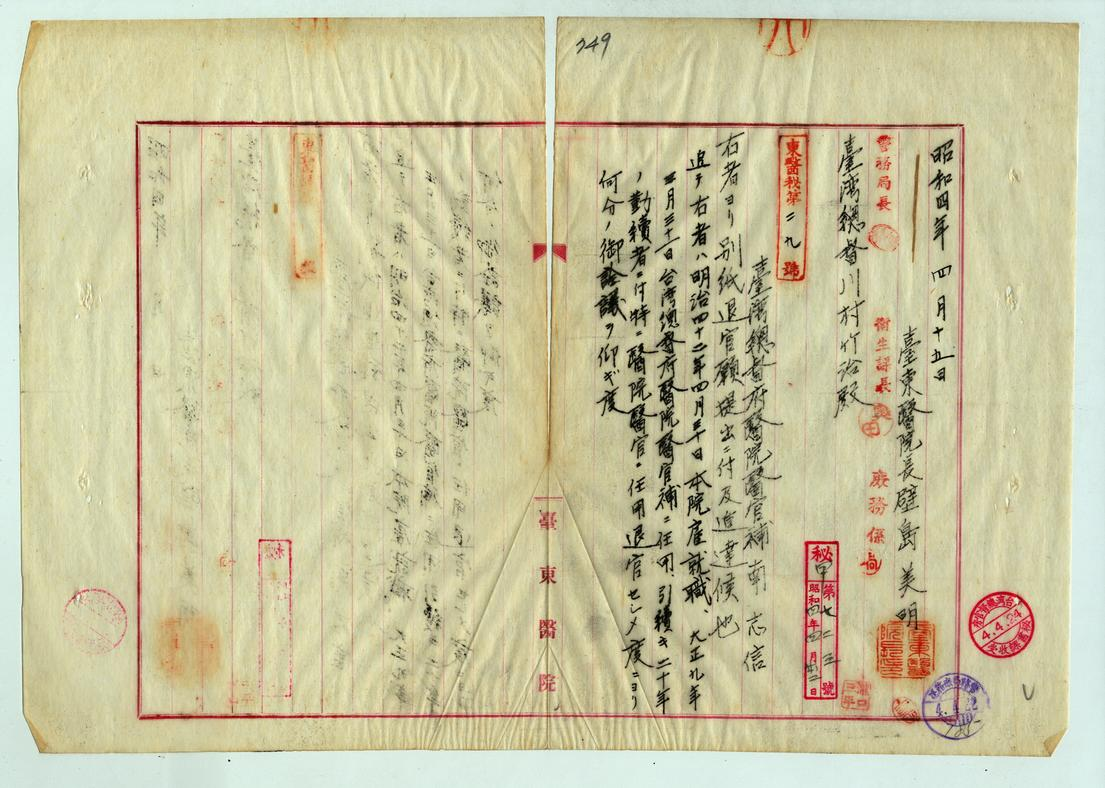 249
昭和四年四月十五日
臺東醫院長壁島美明
警務局長
衛生課長
庶務係
臺灣總督川村竹治殿
東醫秘第二九號
秘甲第七二三號
昭和四年四月廿二日
臺灣總督府醫院醫官補南志信
右者ヨリ別紙退官願提出ニ付及進達候也
追テ右者ハ明治四十二年四月三十日本院雇就職大正九年
三月三十一日台湾總督府醫院醫官補ニ任用引續キ二十年
ノ勤續者ニ付特ニ醫院醫官ニ任用退官セシメ度ニヨリ
何分ノ御詮議ヲ仰ギ度
臺東醫院
4.4.24
4.4.22